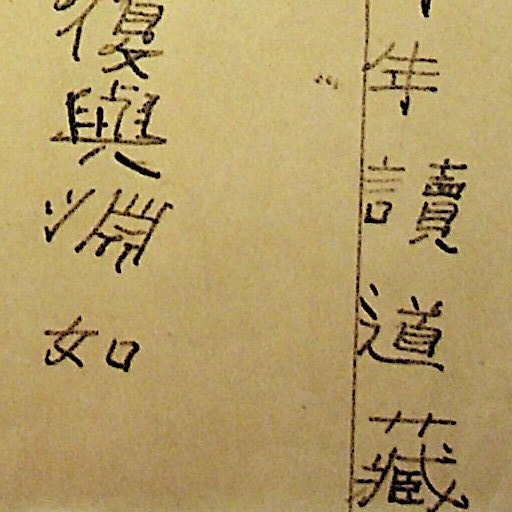 年讀道藏
復與淵如